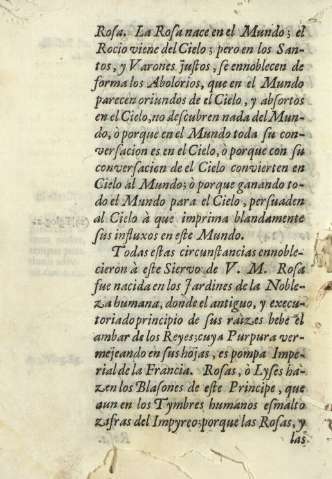 Rosa. La Rosa nace en el Mundo; el
Rocio viene del Cielo; pero en los San-
tos, y Varones justos, se ennoblecen de
forma los Abolorios, que en el Mundo
parecen oriundos de el Cielo, y absortos
en el Cielo, no descubren nada del Mun-
do, ò porque en el Mundo toda su con-
versacion es en el Cielo, ò porque con su
conversacion de el Cielo convierten en
Cielo al Mundo; ò porque ganando to-
do el Mundo para el Cielo, persuaden
al Cielo à que imprima blandamente
sus influxos en este Mundo.
Todas estas circunstancias ennoble-
cieron à este Siervo de V. M. Rosa
fue nacida en los Jardines de la Noble-
za humana, donde el antiguo, y execu-
toriado principio de sus raìzes bebe el
ambar de los Reyes; cuya Purpura ver-
mejeando en sus hojas, es pompa Impe-
rial de la Francia. Rosas, ò Lyses ha-
zen los Blasones de este Principe, que
aun en los Tymbres humanos esmalto
zafras del Impyreo; porque las Rosas, y
las